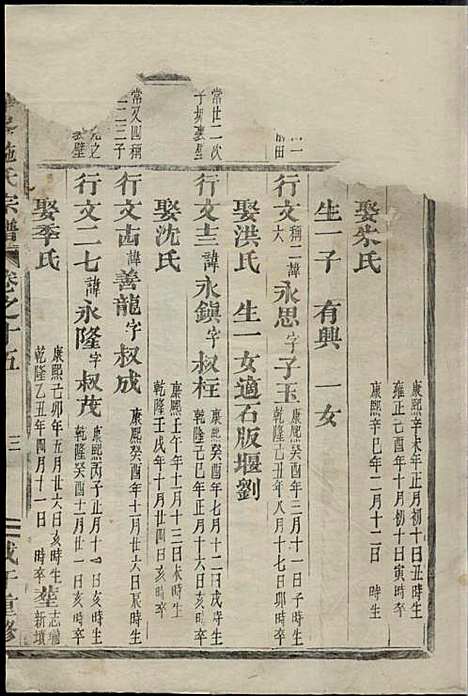 康熙辛未年正月初十日丑時生
雍正己酉年十月初十日寅時卒
娶朱氏
康熙辛巳年二月十二日
生一子 有興 一女
行文大 稱二諱永思字子玉
康熙癸酉年三月十一日時生
乾隆己丑年八月十七日卯時卒
娶洪氏 生一女適石版堰劉
常世二次
行文圭諱永鎮字叔柱
康熙癸酉年七月十二日戌時生
乾隆己巳年正月十六日亥時卒
娶沈氏
康熙壬午年十一月十三日未時生
乾隆壬戌年十月廿四日亥時卒
常又四稱
二三子
行文古諱善龍字叔成
康熙癸酉年十月廿六日亥時生
行文二七諱永隆字叔茂
康熙丙子正月十一日亥時生
乾隆癸酉十月廿一日亥時卒
娶季氏
康熙己卯年五月廿六日亥時生
乾隆乙丑年四月十一日 時卒
葬志端新墳
施氏宗譜 卷之十五 三 重修